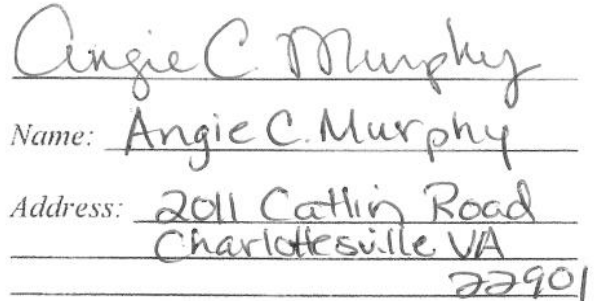 Angie C. Murphy
Name: Angie C. Murphy
Address: 2011 Catlin Road
Charlottesville VA
22901